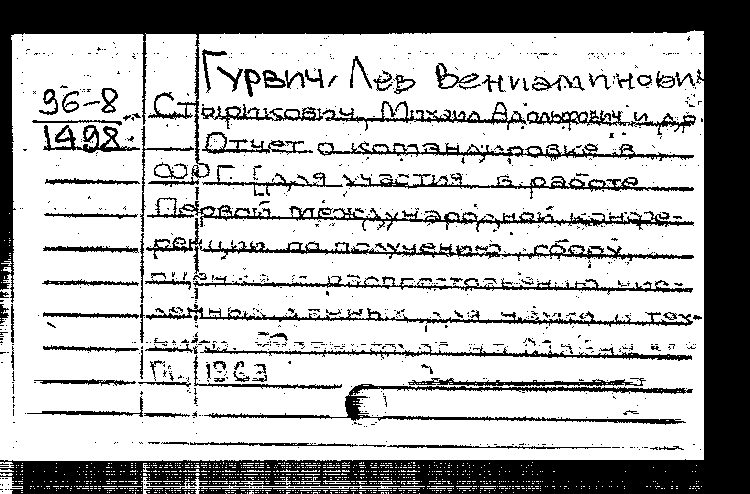 Гурвич, Лев Вениаминович
96-8
1498
Стырикович, Михаил Адольфович и др.
Отчет о командировке в
ФРГ. [для участия в работе
Первой международной конфе-
ренции по получению, сбору,
оценке и распространению чис-
ленных данных для науки и тех-
ники
М., 1963